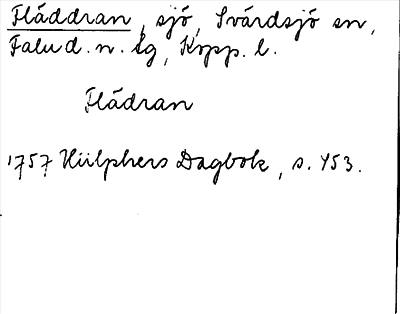 Fláddran, sjö, Svärdsjö sn,
Falu d. n. tg, Kopp. l.
Flädran
1757 Hülphers Dagbok, s. 453.